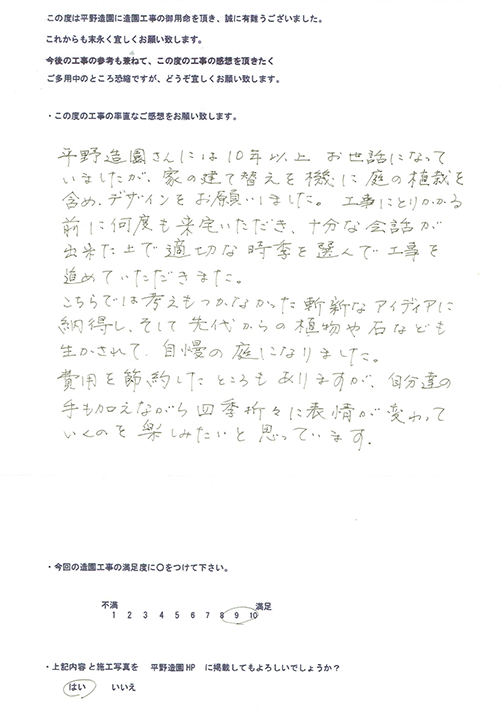 この度は平野造園に造園工事の御用命を頂き、誠に有難うございました。
これからも末永く宜しくお願い致します。
今後の工事の参考も兼ねて、この度の工事の感想を頂きたく
ご多用中のところ恐縮ですが、どうぞ宜しくお願い致します。
・この度の工事の率直なご感想をお願い致します。
平野造園さんには10年以上 お世話になって
いましたが、家の建て替えを機に庭の植栽を
含め、デザインをお願いしました。工事にとりかかる
前に何度も来宅いただき、十分な会話が
出来た上で適切な時季を選んで工事を
進めていただきました。
こちらでは考えもつかなかった斬新なアイディアに
納得し、そして先代からの植物や石なども
生かされて、自慢の庭になりました。
費用を節約したところもありますが、自分達の
手も加えながら四季折々に表情が変わって
いくのを楽しみたいと思っています。
・今回の造園工事の満足度に〇をつけて下さい。
不満 満足
1 2 3 4 5 6 7 8 9 10
・上記内容と施工写真を 平野造園HP に掲載してもよろしいでしょうか？
はい いいえ